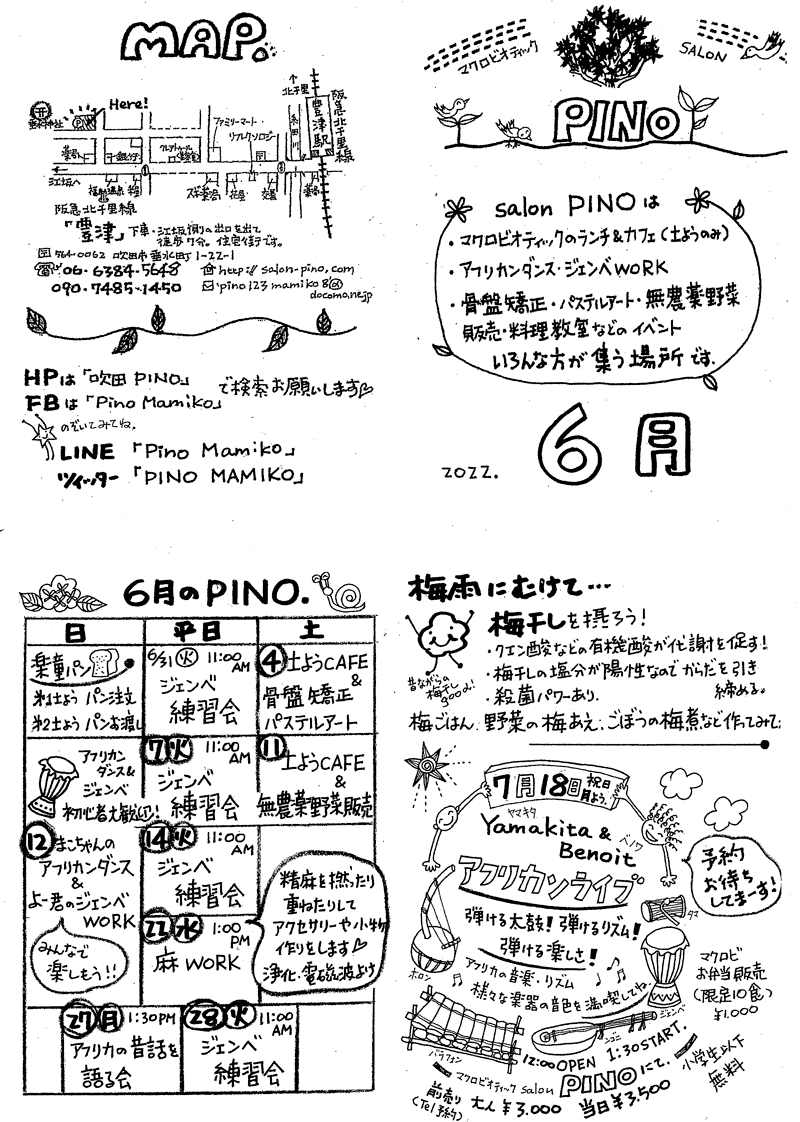 MAP.
Here!
北千里
阪急北千里線
豊津駅
糸田川
ファミリーマート
リフレクソロジー
薬局
江坂へ
スギ薬局
花屋
交番
薬局
阪急北千里線
「豊津」下車・江坂損りの出口を出て
徒歩7分。住宅街です。
564-0062 吹田市垂水町1-22-1
06・6384-5648
http://salon-pino.com
090・7485-1450
pino123mamiko8@
docomo.ne.jp
HPは「吹田 PINO」
FBは「Pino Mamiko」
で検索お願いします♡
のぞいてみてね。
LINE 「Pino Mamiko」
ツイッター 「PINO MAMIKO」
マクロビオティック
SALON
PINO
salon PINOは
・マクロビオティックのランチ&カフェ(土ようのみ)
・アフリカンダンス・ジェンベWORK
・骨盤矯正・パステルアート・無農薬野菜
販売・料理教室などのイベント
いろんな方が集う場所です。
2022.
6月
6月のPINO.
日 平日 土
楽童パン
第1土よう パン注文
第2土よう パンお渡し
5/31 火 11:00 AM
ジェンベ
練習会
4 土ようCAFE
&
骨盤矯正
パステルアート
アフリカン
ダンス&
ジェンベ
初心者大歓迎!
7 火 11:00 AM
ジェンベ
練習会
11 土ようCAFE
&
無農薬野菜販売
12 まこちゃんの
アフリカンダンス
&
よー君のジェンベ
WORK
みんなで
楽しもう!!
14 火 11:00 AM
ジェンベ
練習会
22 水 1:00 PM
麻 WORK
精麻を撚ったり
重ねたりして
アクセサリーや小物
作りをします♡
浄化・電磁波よけ
27 月 1:30PM
アフリカの昔話を
語る会
28 火 11:00 AM
ジェンベ
練習会
梅雨にむけて…
梅干しを摂ろう!
・クエン酸などの有機酸が代謝を促す!
・梅干しの塩分が陽性なのでからだを引き
締める。
・殺菌パワーあり。
昔ながらの
梅干し
good!
梅ごはん、野菜の梅あえ、ごぼうの梅煮など作ってみて。
7月18日 祝日 月よう。
ヤマキタ
Yamakita &
ブノワ
Benoit
アフリカンライブ
予約
お待ち
してまーす!
弾ける太鼓!弾けるリズム!
弾ける楽しさ!
アフリカの音楽・リズム
様々な楽器の音色を満喫してね
タマ
ボロン
ジェンベ
ンゴニ
バラフォン
マクロビ
お弁当販売
(限定10食)
¥1,000
12:00 OPEN 1:30 START.
マクロビオティック salon PINOにて。
小学生以下
無料
前売り
(Tel予約)
大人¥3.000
当日¥3,500